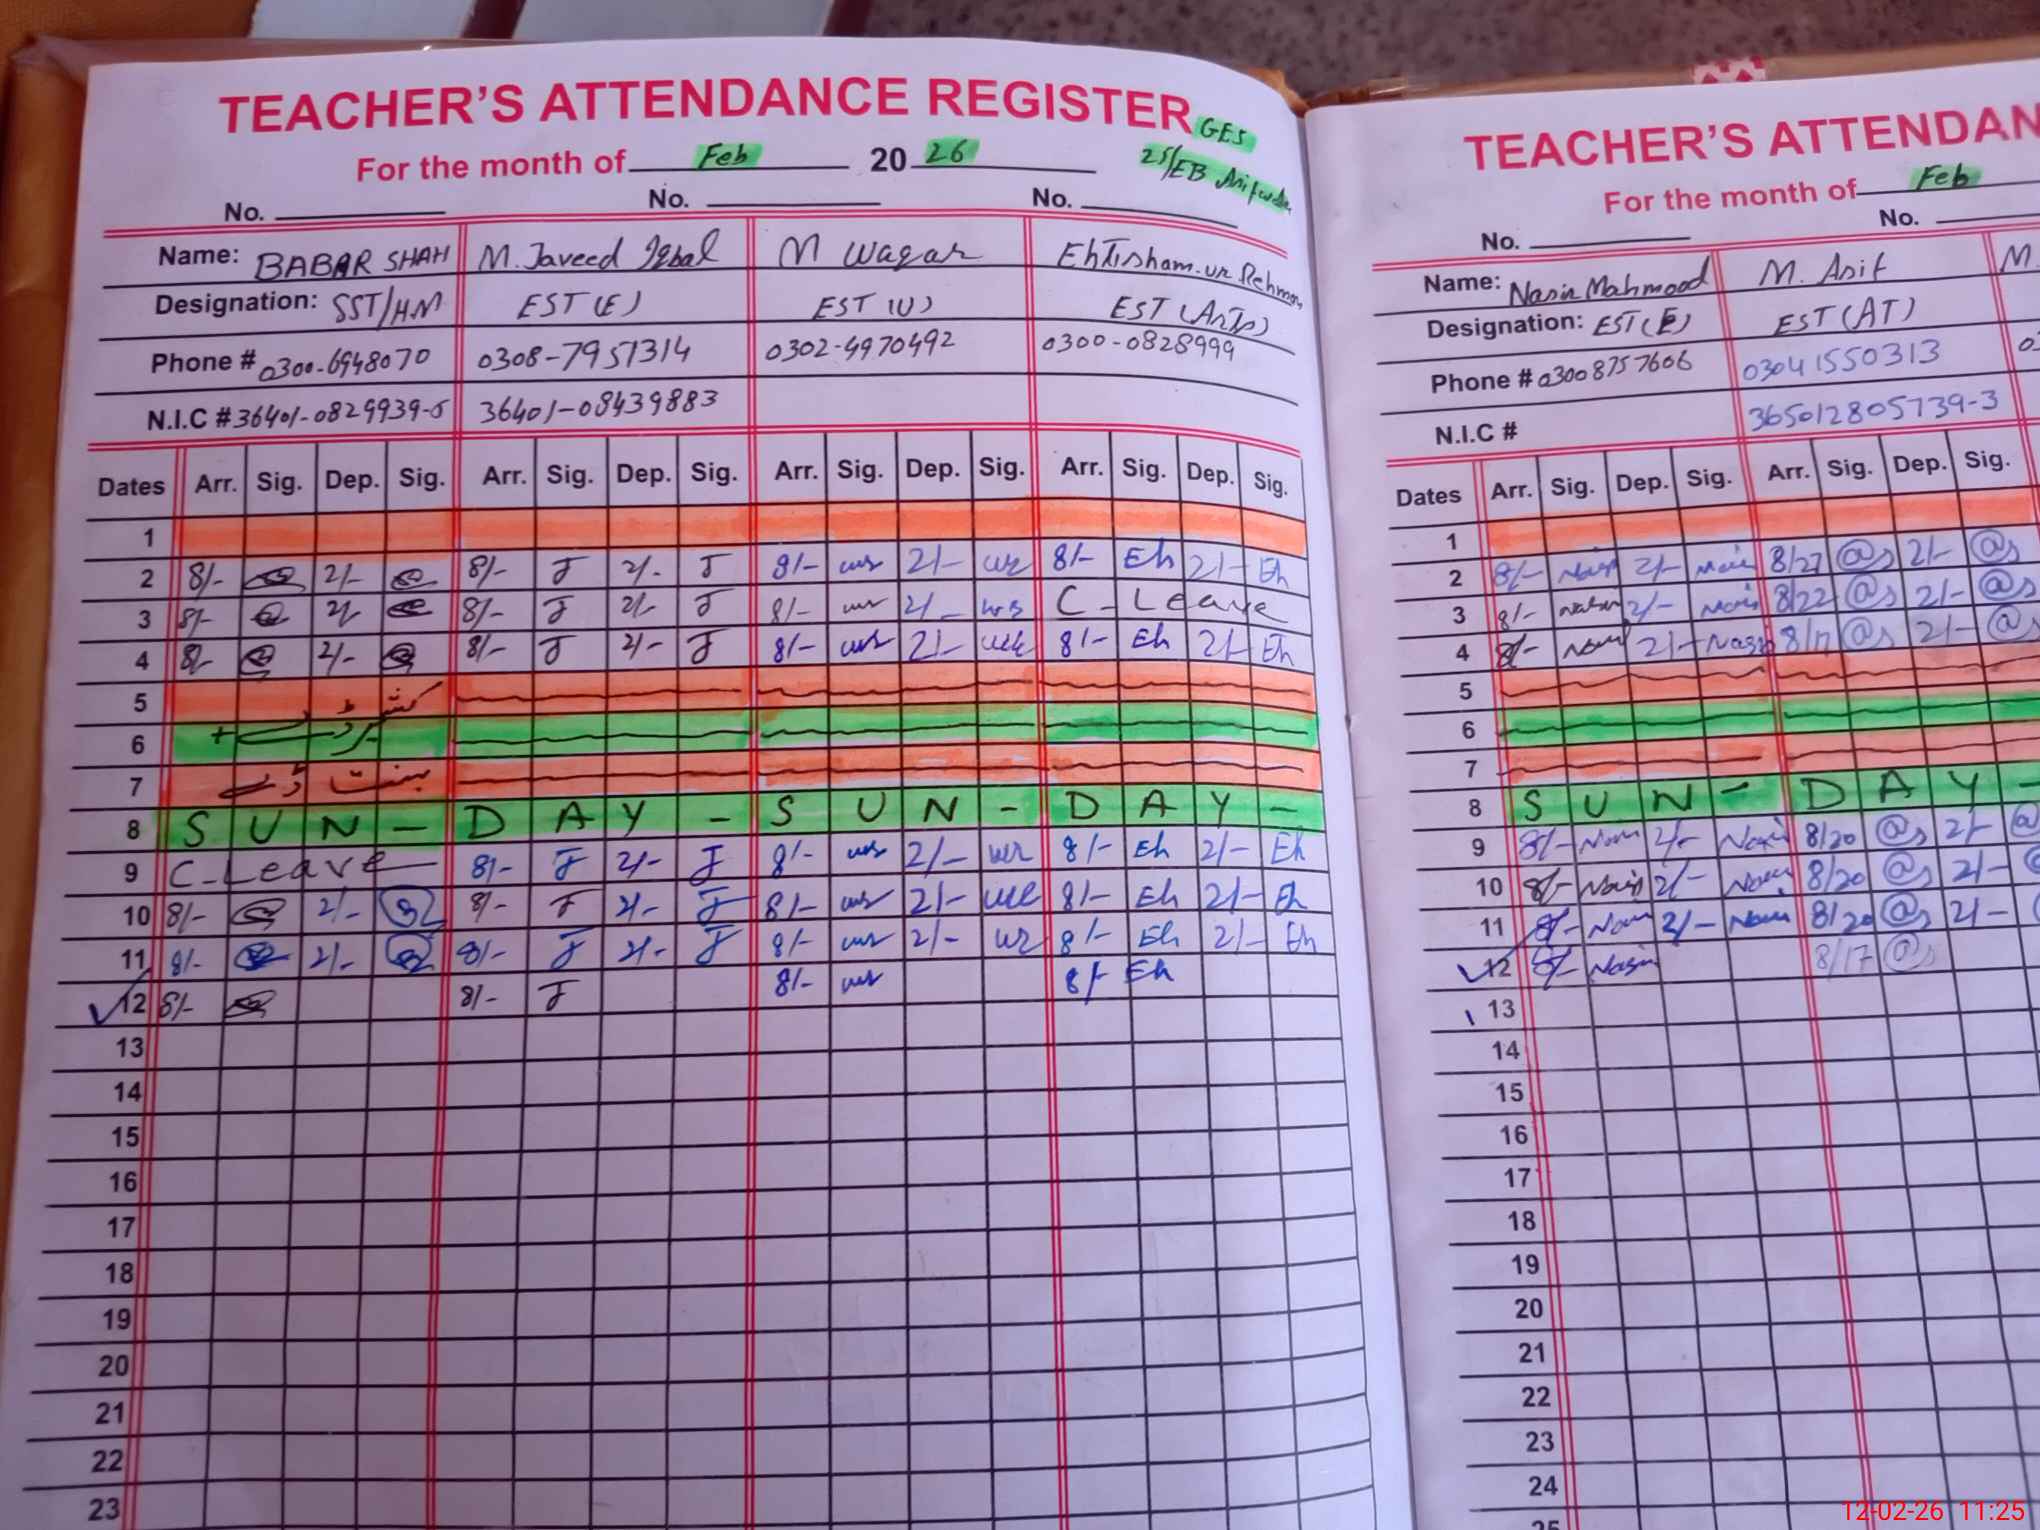 TEACHER'S ATTENDANCE REGISTER
GES
25/EB Arifwala
For the month of Feb 20 26
No. No. No.
Name: BABAR SHAH M. Javeed Iqbal M Waqar Ehtisham-ur Rehman
Designation: SST/HM EST (E) EST (U) EST (Arts)
Phone # 0300-6948070 0308-7951314 0302-4970492 0300-0828999
N.I.C # 36401-0829939-5 36401-08439883
Dates Arr. Sig. Dep. Sig. Arr. Sig. Dep. Sig. Arr. Sig. Dep. Sig. Arr. Sig. Dep. Sig.
1
2 8/- 2/- 8/- J 2/- J 8/- 2/- 8/- Eh 2/- Eh
3 8/- 2/- 8/- J 2/- J 8/- 2/- C - Leave
4 8/- 2/- 8/- J 2/- J 8/- 2/- 8/- Eh 2/- Eh
5 کشمیر ڈے
6 +
7 بسنت ڈے
8 S U N - D A Y - S U N - D A Y -
9 C - Leave 8/- J 2/- J 8/- 2/- 8/- Eh 2/- Eh
10 8/- 2/- 8/- J 2/- J 8/- 2/- 8/- Eh 2/- Eh
11 8/- 2/- 8/- J 2/- J 8/- 2/- 8/- Eh 2/- Eh
12 8/- 8/- J 8/- 8/- Eh
13
14
15
16
17
18
19
20
21
22
23
TEACHER'S ATTENDAN
For the month of Feb
No. No.
Name: Nasir Mahmood M. Asif M.
Designation: EST (E) EST (AT)
Phone # 03008757606 03041550313 03
N.I.C # 365012805739-3
Dates Arr. Sig. Dep. Sig. Arr. Sig. Dep. Sig.
1
2 8/- Nasir 2/- Nasir 8/27 @s 2/- @s
3 8/- Nasir 2/- Nasir 8/22 @s 2/- @s
4 8/- Nasir 2/- Nasir 8/17 @s 2/- @s
5
6
7
8 S U N - D A Y -
9 8/- Nasir 2/- Nasir 8/20 @s 2/- @
10 8/- Nasir 2/- Nasir 8/20 @s 2/-
11 8/- Nasir 2/- Nasir 8/20 @s 2/-
12 8/- Nasir 8/17 @s
13
14
15
16
17
18
19
20
21
22
23
24
25
12-02-26 11:25